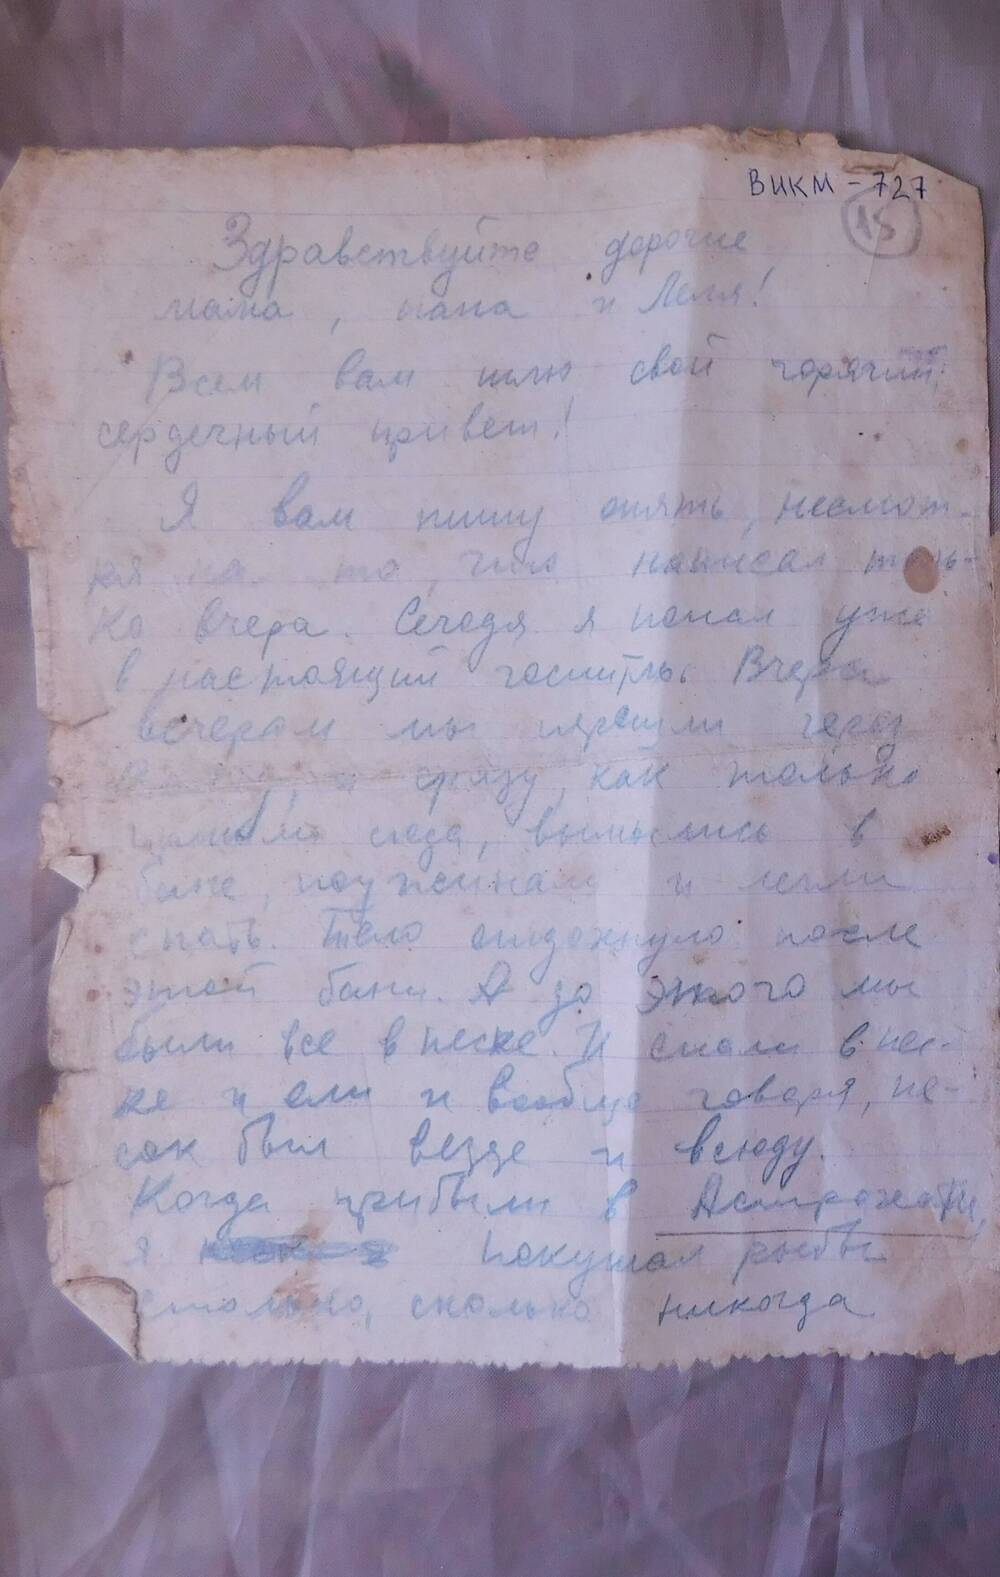 ВИКМ - 727
15
Здравствуйте дорогие
мама, папа и Леля!
Всем вам шлю свой горячий,
сердечный привет!
Я вам пишу опять, несмот-
ря на то, что написал толь-
ко вчера. Сегодя я попал уже
в настоящий Вчера
вечером мы через
и сразу, как только
сюда, вымылись в
бане, поужинали и легли
спать. Тело отдохнуло после
этой бани. А до этого мы
были все в песке. И спали в пес-
ке и ели и вообще говоря, пе-
сок был везде и всюду.
Когда прибыли в
я покушал рыбы
столько, сколько никогда